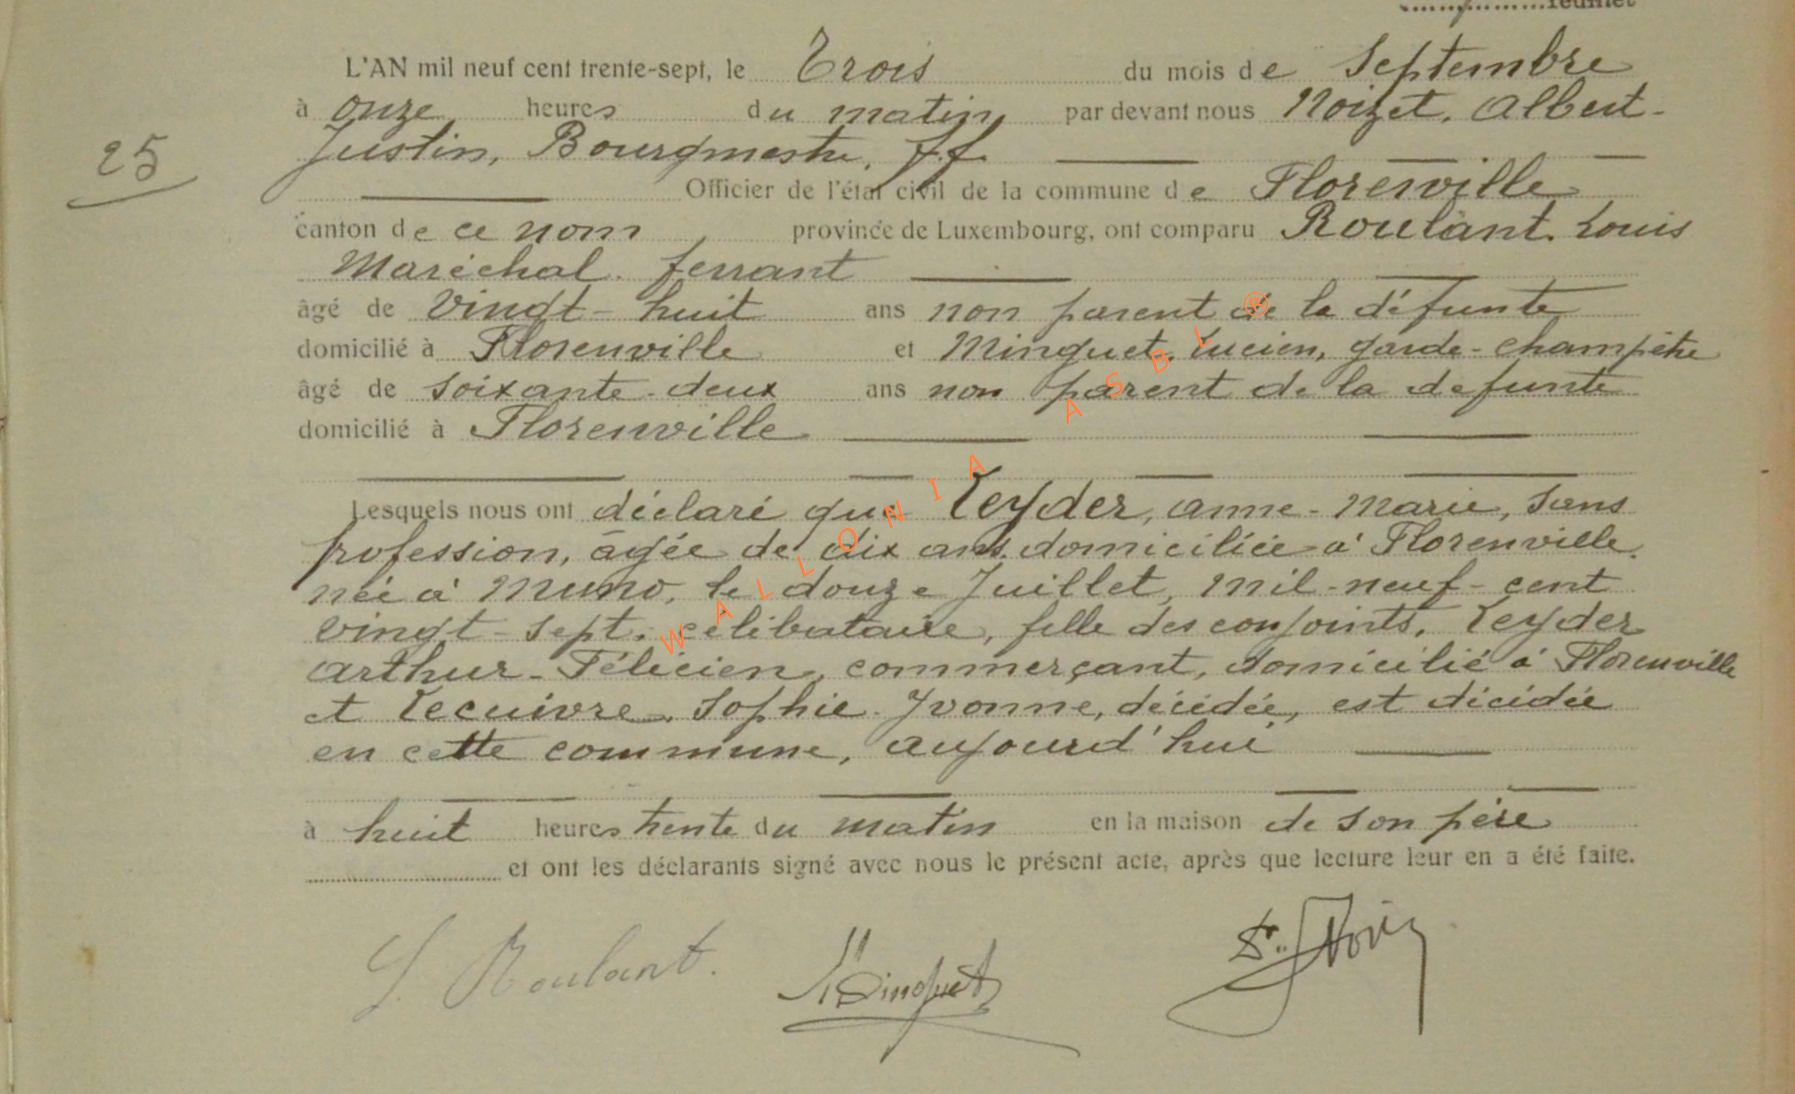 feuillet
L'AN mil neuf cent trente-sept, le Trois du mois de Septembre
à onze heures du matin par devant nous Noizet, Albert-
25
Justin, Bourgmestre, f.f.
Officier de l'état civil de la commune de Florenville
canton de ce nom, province de Luxembourg, ont comparu Roulant, Louis
Maréchal ferrant
âgé de vingt-huit ans non parent de la défunte
domicilié à Florenville et Minguet, Lucien, garde-champêtre
âgé de soixante-deux ans non parent de la defunte
domicilié à Florenville
Lesquels nous ont déclaré que Leyder, Anne-Marie, sans
profession, âgée de dix ans, domiciliée à Florenville,
née à Muno, le douze Juillet, mil-neuf-cent
vingt-sept, célibataire, fille des conjoints, Leyder
Arthur-Félicien, commerçant, domicilié à Florenville
et Lecuivre, Sophie-Yvonne, décédée, est décédée
en cette commune, aujourd'hui
à huit heures trente du matin en la maison de son père
et ont les déclarants signé avec nous le présent acte, après que lecture leur en a été faite.
L. Roulant. Minguet
WALLONIA ASBL ®